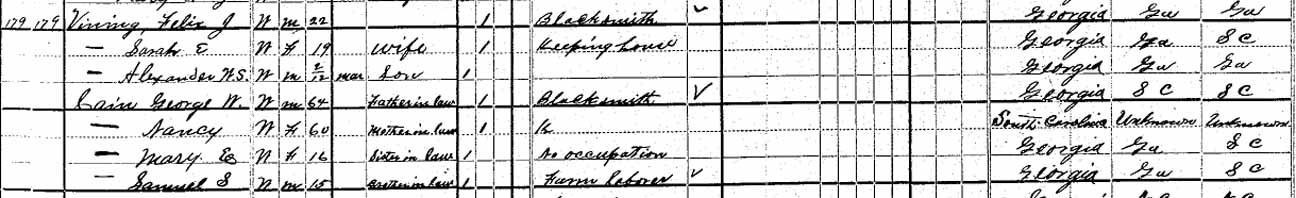 179 179 Vining, Felix J W m 22 1 Blacksmith Georgia Ga Ga
— Sarah E W F 19 wife 1 Keeping house Georgia Ga S C
— Alexander W.S. W m 2/12 mar Son 1 Georgia Ga Ga
Cain George W. W m 64 Father in law 1 Blacksmith Georgia S C S C
— Nancy W F 60 Mother in law 1 K South Carolina Unknown Unknown
— Mary E W F 16 Sister in law 1 No occupation Georgia Ga S C
— Samuel S W m 15 Brother in law 1 Farm laborer Georgia Ga S C